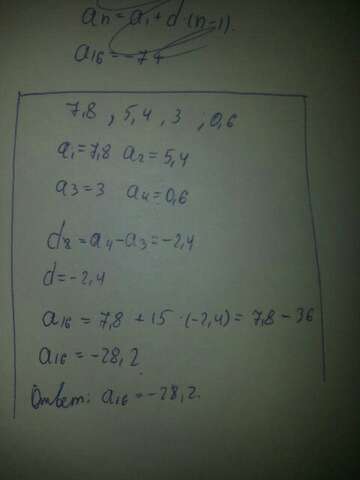 an = a₁ + d·(n-1).
a₁₆ = -74
7,8 ; 5,4 , 3 ; 0,6
a₁ = 7,8 a₂ = 5,4
a₃ = 3 a₄ = 0,6
d₈ = a₄ - a₃ = -2,4
d = -2,4
a₁₆ = 7,8 + 15 · (-2,4) = 7,8 - 36
a₁₆ = -28,2.
Ответ: a₁₆ = -28,2.